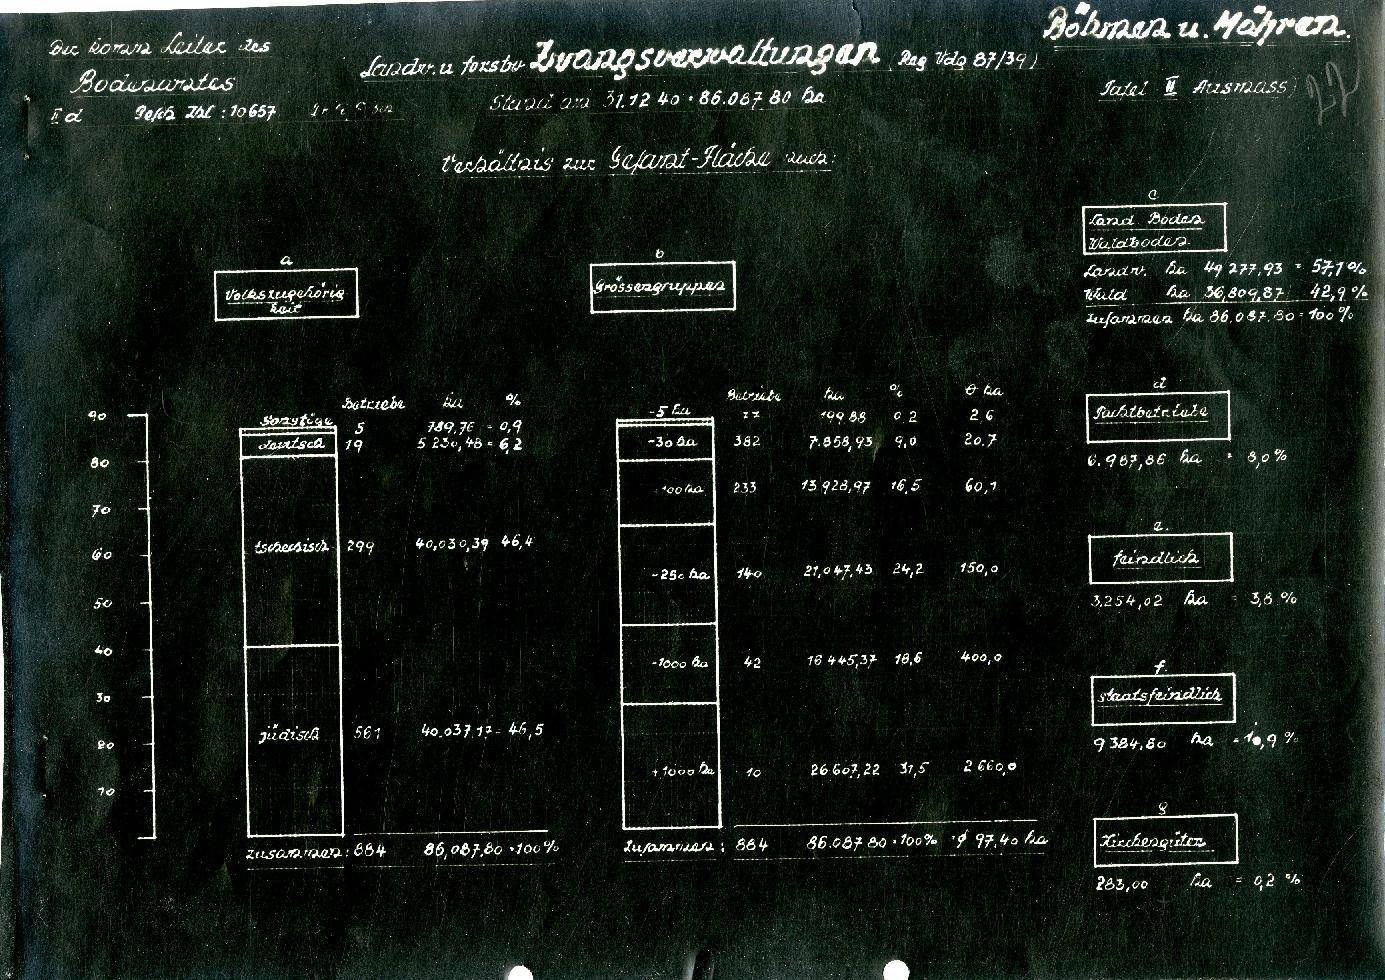 Der komm Leiter des
Bodenamtes
II d Gesch Zhl : 10657
Landw. u forstw Zwangsverwaltungen (Reg Vdg 87/39)
Stand am 31.12 40 · 86.087 80 ha
Böhmen u. Mähren.
Tafel III Ausmass)
22
Verhältnis zur Gesamt-Fläche nach:
a
Volkszugehörig
keit
Betriebe ha %
Sonstige 5 789,76 = 0,9
deutsch 19 5 230,48 = 6,2
tschechisch 299 40,030,39 46,4
jüdisch 561 40.037 17 = 46,5
zusammen: 884 86,087,80 = 100%
90
80
70
60
50
40
30
20
10
b
Grössengruppen
Betriebe ha % Ø ha
-5 ha 77 199 88 0,2 2,6
-30 ha 382 7.858,93 9,0 20.7
-100 ha 233 13 928,97 16,5 60,1
-250 ha 140 21,047.43 24,2 150,0
-1000 ha 42 16 445,37 18,6 400,0
+1000 ha 10 26 607,22 31,5 2 660,0
Zusammen: 884 86.087 80 = 100% Ø 97.40 ha
c
Land. Boden
Waldboden
Landw. ha 49 277,93 = 57,1%
Wald ha 36,809,87 42,9%
Zusammen ha 86.087.80 = 100%
d
Pachtbetriebe
6.987,86 ha = 8,0%
e.
feindlich
3.254,02 ha = 3,8%
f.
staatsfeindlich
9 384,80 ha = 10,9%
g
Kirchengüter
283,00 ha = 0,2%